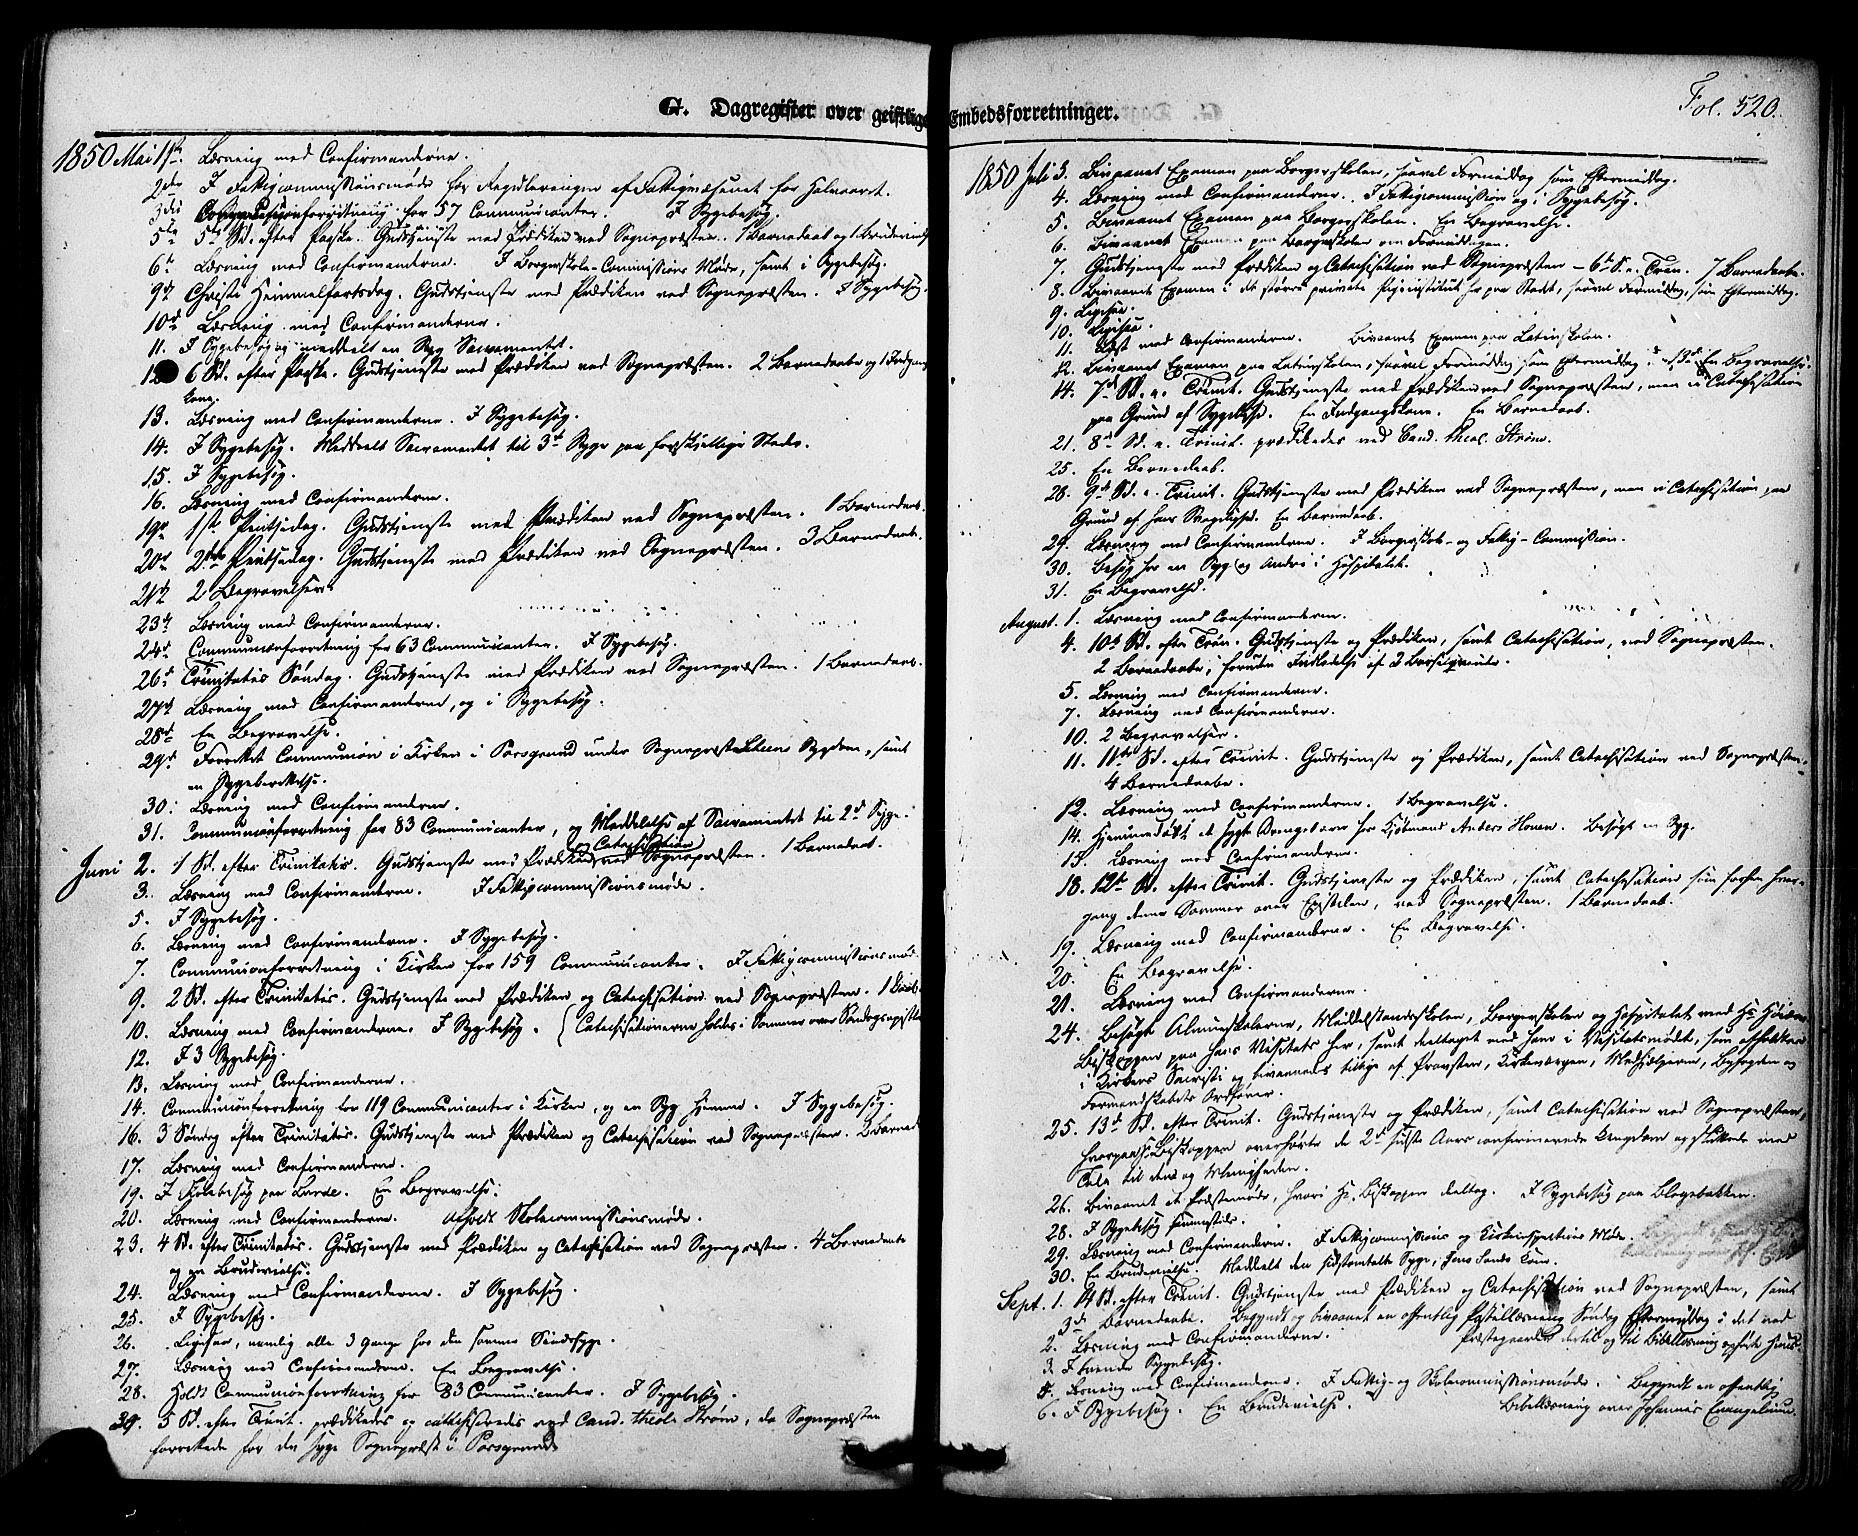 G. Dagregister over geistlige Embedsforretninger.
Fol. 520.
1850 Mai 1ste. Læsning med Confirmanderne.
2den I Fattigcommissionsmøde for Reguleringen af Fattigvæsenet for Halvaaret.
3die Communionforretning for 57 Communicanter. I Sygebesøg.
5te 5te Sd. efter Paaske. Gudstjeneste med Prædiken ved Sognepræsten. 1 Barnedaab og 1 Brudevielse
6te Læsning med Confirmanderne. I Borgerskole-Commissions Møde, samt i Sygebesøg.
9de Christi Himmelfartsdag. Gudstjeneste med Prædiken ved Sognepræsten. I Sygebesøg.
10de Læsning med Confirmanderne.
11. I Sygebesøg og meddeelt en Syg Sacramentet.
12 6 Sd. efter Paaske. Gudstjeneste med Prædiken ved Sognepræsten. 2 Barnedaabe og 1 Indgangs
Kone.
13. Læsning med Confirmanderne. I Sygebesøg.
14. I Sygebesøg. Meddeelt Sacramentet til 3de Syge paa forskjellige Steder.
15. I Sygebesøg.
16. Læsning med Confirmanderne.
19de 1ste Pintsedag. Gudstjeneste med Prædiken ved Sognepræsten. 1 Barnedaab.
20de 2den Pintsedag. Gudstjeneste med Prædiken ved Sognepræsten. 3 Barnedaab.
21de 2 Begravelser.
23de Læsning med Confirmanderne.
24de Communionforretning for 63 Communicanter. I Sygebesøg.
26de Trinitatis Søndag. Gudstjeneste med Prædiken ved Sognepræsten. 1 Barnedaab.
27de Læsning med Confirmanderne, og i Sygebesøg.
28de En Begravelse.
29de Forrettet Communion i Kirken i Porsgrund under Sognepræst Sygdom, samt
en Sygeberettelse.
30. Læsning med Confirmanderne.
31. Communionforretning for 83 Communicanter, og Meddelelse af Sacramentet til 2de Syge.
Juni 2. 1 Sd. efter Trinitatis. Gudstjeneste med Prædiken og Catechisation ved Sognepræsten. 1 Barnedaab.
3. Læsning med Confirmanderne. I Fattigcommissionsmøde.
5. I Sygebesøg.
6. Læsning med Confirmanderne. I Sygebesøg.
7. Communionforretning i Kirken for 159 Communicanter. I Fattigcommissionsmøde
9. 2 Sd. efter Trinitatis. Gudstjeneste med Prædiken og Catechisation ved Sognepræsten. 1
10. Læsning med Confirmanderne. I Sygebesøg. (Catechisationerne holdes i Sommer over Søndagsepistlerne
12. I 3 Sygebesøg.
13. Læsning med Confirmanderne.
14. Communionforretning for 119 Communicanter i Kirken, og en Syg hjemme. I Sygebesøg.
16. 3 Søndag efter Trinitatis. Gudstjeneste med Prædiken og Catechisation ved Sognepræsten. 2 Barned
17. Læsning med Confirmanderne.
19. I Skolebesøg paa. En Begravelse.
20. Læsning med Confirmanderne. Afholdt Skolecommissionsmøde.
23. 4 Sd. efter Trinitatis. Gudstjeneste med Prædiken og Catechisation ved Sognepræsten. 4 Barnedaabe
og en Brudevielse.
24. Læsning med Confirmanderne. I Sygebesøg.
25. I Sygebesøg.
26. Ligesaa, nemlig alle 3 gange hos den samme Sindssyge.
27. Læsning med Confirmanderne. En Begravelse.
28. Holdt Communionforretning for 83 Communicanter. I Sygebesøg.
30. 5 Sd. efter Trinit. prædikedes og catechiseredes ved Cand. theol. Strøm, da Sognepræsten
forrettede for den syge Sognepræst i Porsgrund
1850 Juli 3. Bivaanet Examen paa Borgerskolen, saavel Formiddag som Eftermiddag.
4. Læsning med Confirmanderne. I Fattigcommission og i Sygebesøg.
5. Bivaanet Examen paa Borgerskolen. En Begravelse.
6. Bivaanet Examen paa Borgerskolen om Formiddagen.
7. Gudstjeneste med Prædiken og Catechisation ved Sognepræsten – 6te S. e. Trin. 7 Barnedaabe.
8. Bivaanet Examen i det større private Pigeinstitut her paa Stedet, saavel Formiddag, som Eftermiddag.
9. Ligesaa.
10. Ligesaa.
11. Læst med Confirmanderne. Bivaanet Examen paa Latinskolen.
12. Bivaanet Examen paa Latinskolen, saavel Formiddag som Eftermiddag. En Begravelse.
14. 7de Sd. e. Trinit. Gudstjeneste med Prædiken ved Sognepræsten, men ei Catechisation
paa Grund af Sygelighed. En Indgangskone. En Barnedaab.
21. 8de Sd. e. Trinit. prædikedes ved Cand. theol. Strøm.
25. En Barnedaab.
28. 9de Sd. e. Trinit. Gudstjeneste med Prædiken ved Sognepræsten, men ei Catechisation, paa
Grund af hans Svagelighed. En Barnedaab.
29. Læsning med Confirmanderne. I Borgerskole- og Fattig-Commission.
30. Besøg hos en Syg og Andre i Hospitalet.
31. En Begravelse.
August. 1. Læsning med Confirmanderne.
4. 10de Sd. efter Trin. Gudstjeneste og Prædiken, samt Catechisation, ved Sognepræsten.
2 Barnedaabe, foruden Indledelse af 3 Barselqvinder.
5. Læsning med Confirmanderne.
7. Læsning med Confirmanderne.
10. 2 Begravelser.
11. 11te Sd. efter Trinit. Gudstjeneste og Prædiken, samt Catechisation ved Sognepræsten.
4 Barnedaabe.
12. Læsning med Confirmanderne. 1 Begravelse.
14. Hjemmedøbt et sygt Drengebarn hos Kjøbmand Anders Hansen. Besøgt en Syg.
15. Læsning med Confirmanderne.
18. 12te Sd. efter Trinit. Gudstjeneste og Prædiken, samt Catechisation som sædvanlig hver-
gang denne Sommer over Epistelen, ved Sognepræsten. 1 Barnedaab.
19. Læsning med Confirmanderne. En Begravelse.
20. En Begravelse.
21. Læsning med Confirmanderne.
24. Besøgt Almueskolerne, Middelstandsskolen, Borgerskolen og Hospitalet med Hr.
Biskoppen paa hans Visitats her, samt deeltaget med ham i Visitatsmødet, som afholdtes
i Kirkens Sacristi og bivaanedes tillige af Provsten, Kirkeværgen, Medhjælperne, Byfogden og
Formandskabets Ordfører.
25. 13de Sd. efter Trinit. Gudstjeneste og Prædiken, samt Catechisation ved Sognepræsten,
hvorpaa Hr. Biskoppen overhørte de 2de sidste Aars confirmerede Ungdom og sluttede med
Tale til dem og Menigheden.
26. Bivaanet et Præstemøde, hvori Hr. Biskoppen deeltog. I Sygebesøg paa Blegebakken.
28. I Sygebesøg hjemmesteds.
29. Læsning med Confirmanderne. I Fattigcommissions og Kirkeinspections Møde.
30. En Brudevielse. Meddeelt den sidstomtalte Syge, Jens Sands Kone.
Sept. 1. 14 Sd. efter Trinit. Gudstjeneste med Prædiken og Catechisation ved Sognepræsten, samt
3de Barnedaabe. Begyndt og bivaanet en offentlig Postillæsning Søndag Eftermiddag i det ved
2. Læsning med Confirmanderne. Præstegaarden dertil og til Bibellæsning opførte Huus.
3. I Sygebesøg.
4. Læsning med Confirmanderne. I Fattig- og Skolecommissionsmøde. Begyndt en offentlig
6. I Sygebesøg. En Brudevielse. Bibellæsning over Johannes Evangelium.